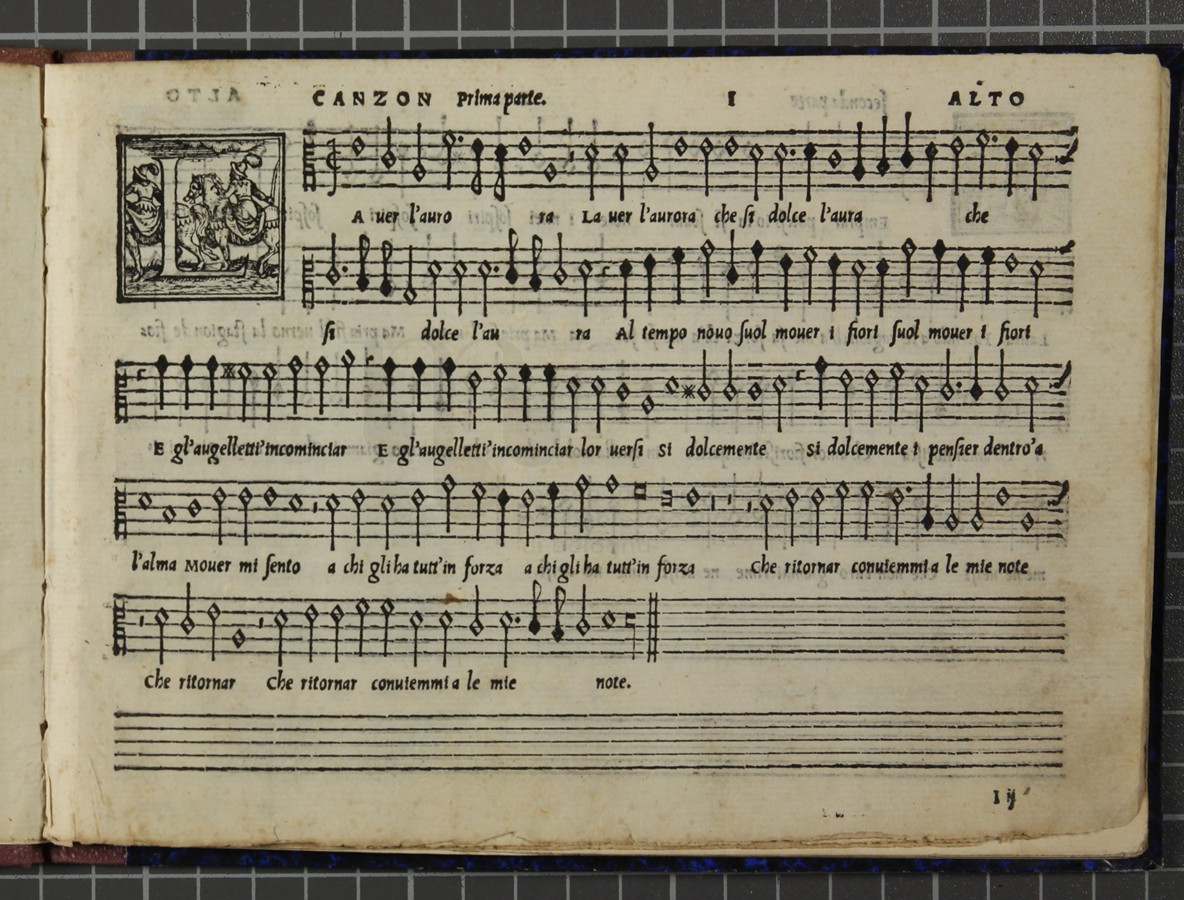 CANZON Prima parte. I ALTO
L A uer l'auro ra La uer l'aurora che ſi dolce l'aura che
ſi dolce l'au ra Al tempo nouo ſuol mouer i fiori ſuol mouer i fiori
E gl'augelletti'incominciar E gl'augelletti'incominciar lor uerſi Si dolcemente si dolcemente i penſier dentro'a
l'alma Mouer mi ſento a chi gli ha tutt'in forza a chi gli ha tutt'in forza Che ritornar conuiemmi a le mie note
Che ritornar Che ritornar conuiemmi a le mie note.
I ij